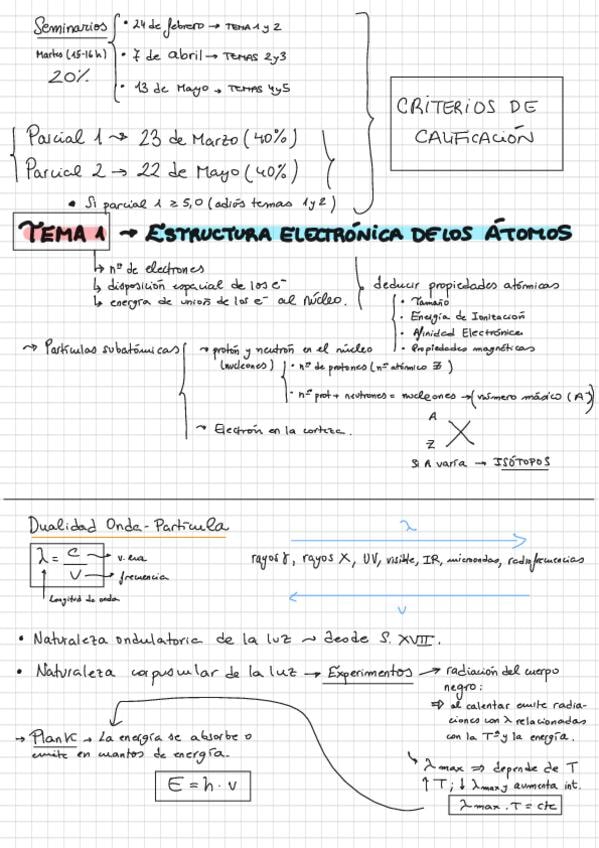 Seminarios
Martes (15-16h)
20%
• 24 de febrero → TEMA 1 y 2
• 7 de abril → TEMAS 2 y 3
• 13 de Mayo → TEMAS 4 y 5
CRITERIOS DE
CALIFICACIÓN
Parcial 1 → 23 de Marzo (40%)
Parcial 2 → 22 de Mayo (40%)
• Si parcial 1 ≥ 5,0 (adiós temas 1 y 2)
TEMA 1 → ESTRUCTURA ELECTRÓNICA DE LOS ÁTOMOS
↳ nº de electrones
↳ disposición espacial de los e⁻
↳ energía de unión de los e⁻ al núcleo.
deducir propiedades atómicas
• Tamaño
• Energía de Ionización
• Afinidad Electrónica
• Propiedades magnéticas
→ Partículas subatómicas
→ protón y neutrón en el núcleo
(nucleones)
• nº de protones (nº atómico Z)
• nº prot + neutrones = nucleones → (número másico (A))
→ Electrón en la corteza.
A
Z X
Si A varía → ISÓTOPOS
Dualidad Onda-Partícula
λ = c/ν
→ v.
→ frecuencia
Longitud de onda
λ
rayos γ, rayos X, UV, visible, IR, microondas, radiofrecuencias
ν
• Naturaleza ondulatoria de la luz → desde S. XVII.
• Naturaleza corpuscular de la luz → Experimentos → radiación del cuerpo
negro:
⇒ al calentar emite radia-
ciones con λ relacionadas
con la Tª y la energía.
→ Plank → La energía se absorbe o
emite en cuantos de energía.
E = h · ν
↳ λmax ⇒ depende de T
↑T; ↓λmax y aumenta int.
λmax · T = cte